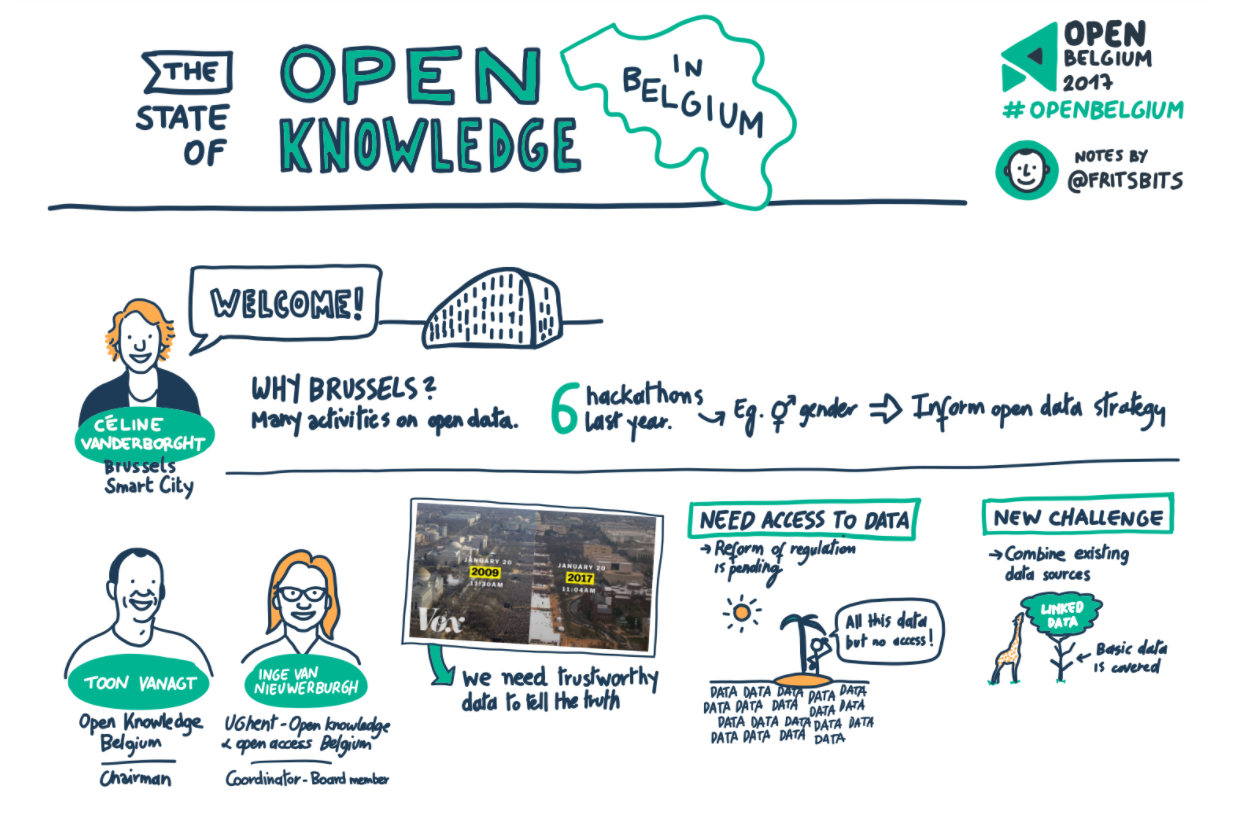 THE
STATE
OF
OPEN
KNOWLEDGE
IN
BELGIUM
OPEN
BELGIUM
2017
# OPENBELGIUM
NOTES BY
@FRITSBITS
WELCOME!
CÉLINE
VANDERBORGHT
Brussels
Smart City
WHY BRUSSELS?
Many activities on open data.
6 hackathons
last year.
Eg. gender
Inform open data strategy
TOON VANAGT
Open Knowledge
Belgium
Chairman
INGE VAN
NIEUWERBURGH
UGhent - Open knowledge
& open access Belgium
Coordinator - Board member
JANUARY 20
2009
11:30AM
JANUARY 20
2017
11:04AM
Vox
we need trustworthy
data to tell the truth
NEED ACCESS TO DATA
→ Reform of regulation
is pending
All this data
but no access!
DATA DATA DATA DATA DATA
DATA DATA DATA DATA DATA
DATA DATA DATA DATA DATA
DATA DATA DATA DATA
NEW CHALLENGE
→ Combine existing
data sources
LINKED
DATA
Basic data
is covered